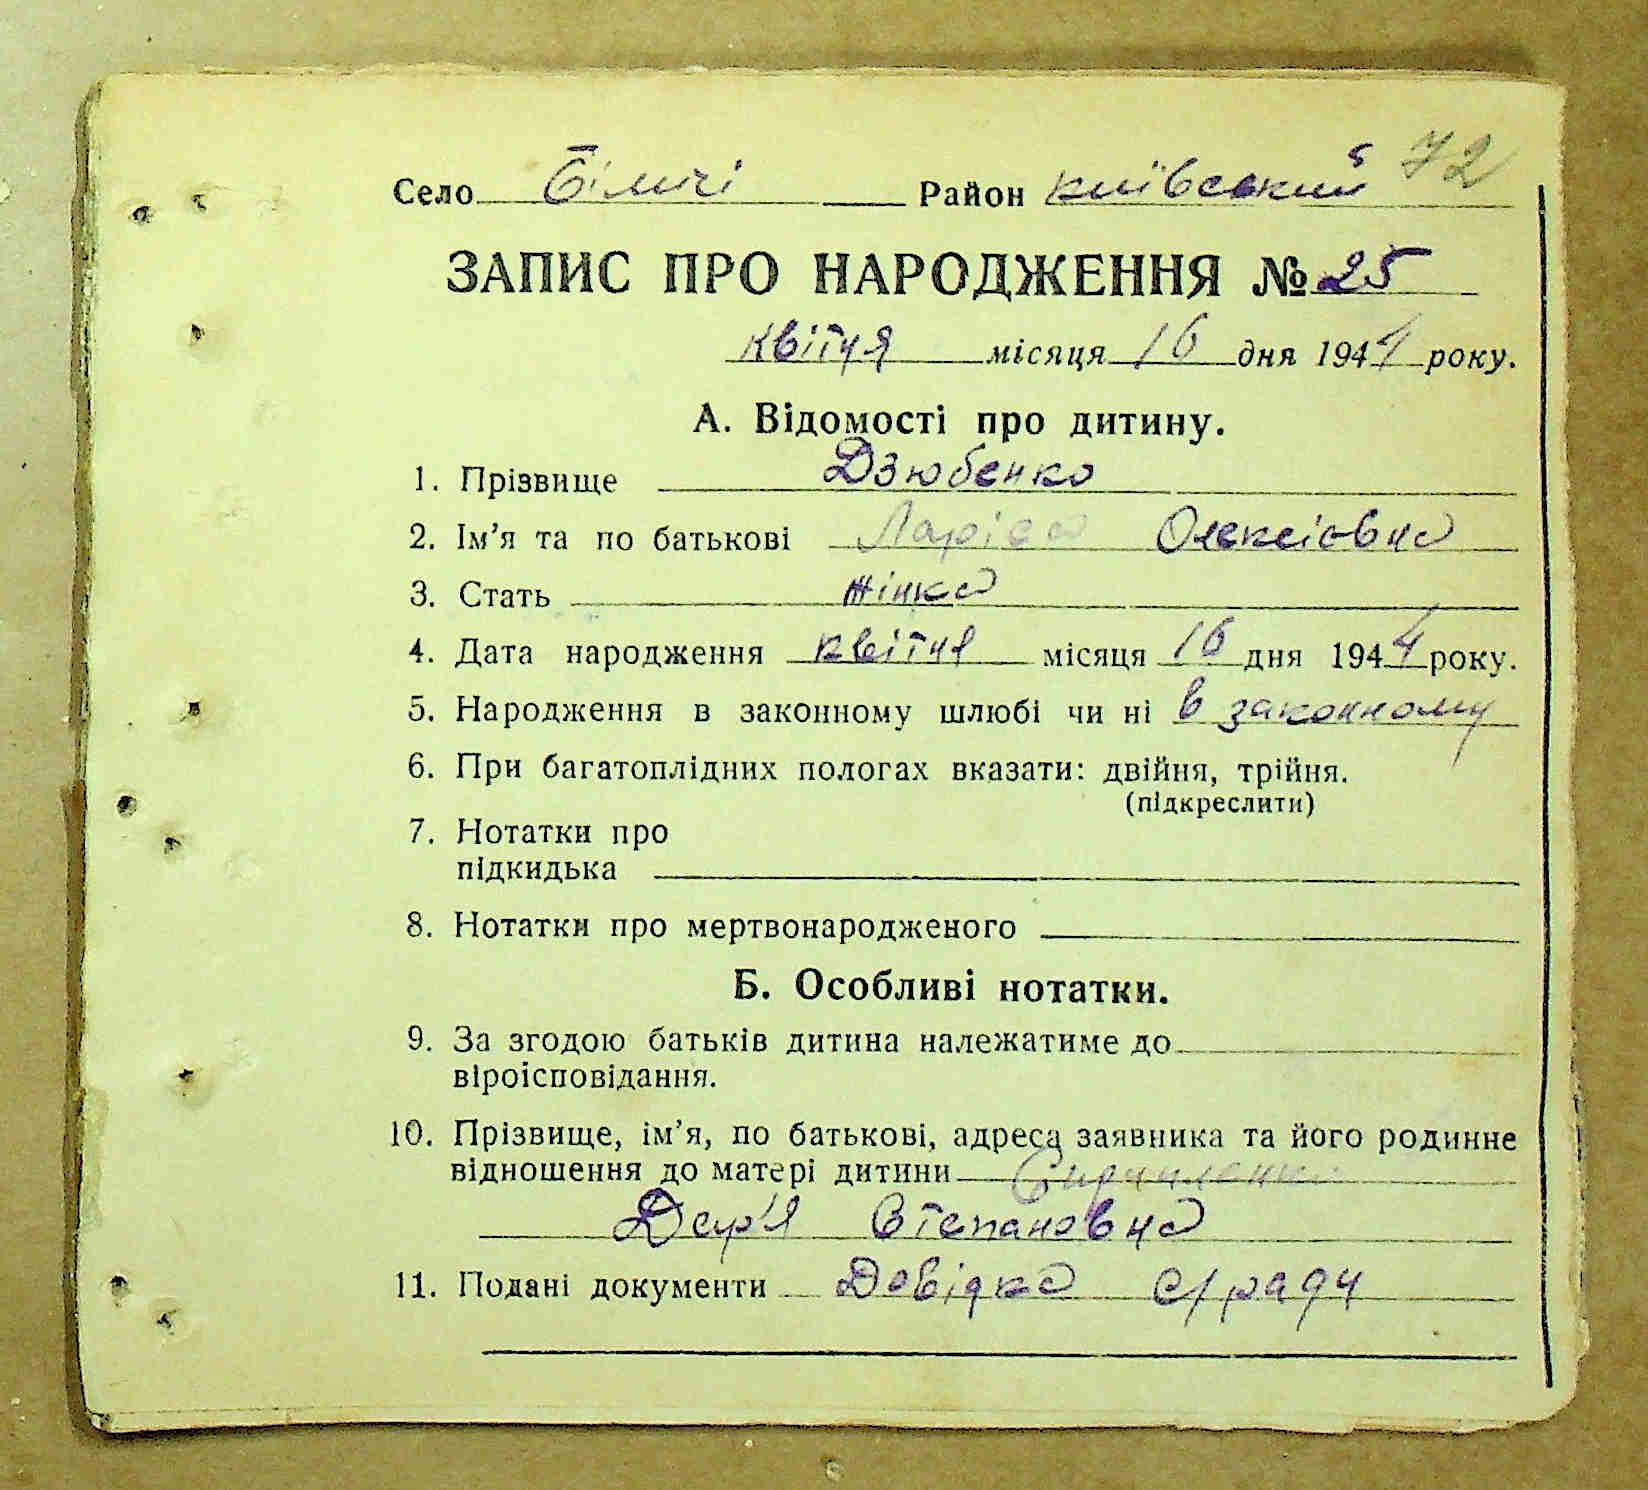 72
Село Біличі Район київський
ЗАПИС ПРО НАРОДЖЕННЯ № 25
квітня місяця 16 дня 1944 року.
А. Відомості про дитину.
1. Прізвище Дзюбенко
2. Ім’я та по батькові Ларіса Олексіовна
3. Стать жінка
4. Дата народження квітня місяця 16 дня 1944 року.
5. Народження в законному шлюбі чи ні в законному
6. При багатоплідних пологах вказати: двійня, трійня.
(підкреслити)
7. Нотатки про
підкидька
8. Нотатки про мертвонародженого
Б. Особливі нотатки.
9. За згодою батьків дитина належатиме до
віроісповідання.
10. Прізвище, ім’я, по батькові, адреса заявника та його родинне
відношення до матері дитини
Дар'я Степановна
11. Подані документи Довідка с/ради